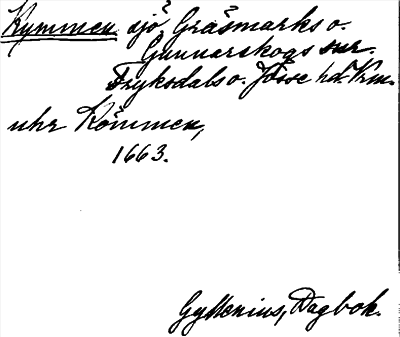 Kymmen sjö Gräsmarks o.
Gunnarskogs snr.
Fryksdals o. Jösse hd. Vrm.
uhr Kömmen,
1663.
Gyllenius, Dagbok.